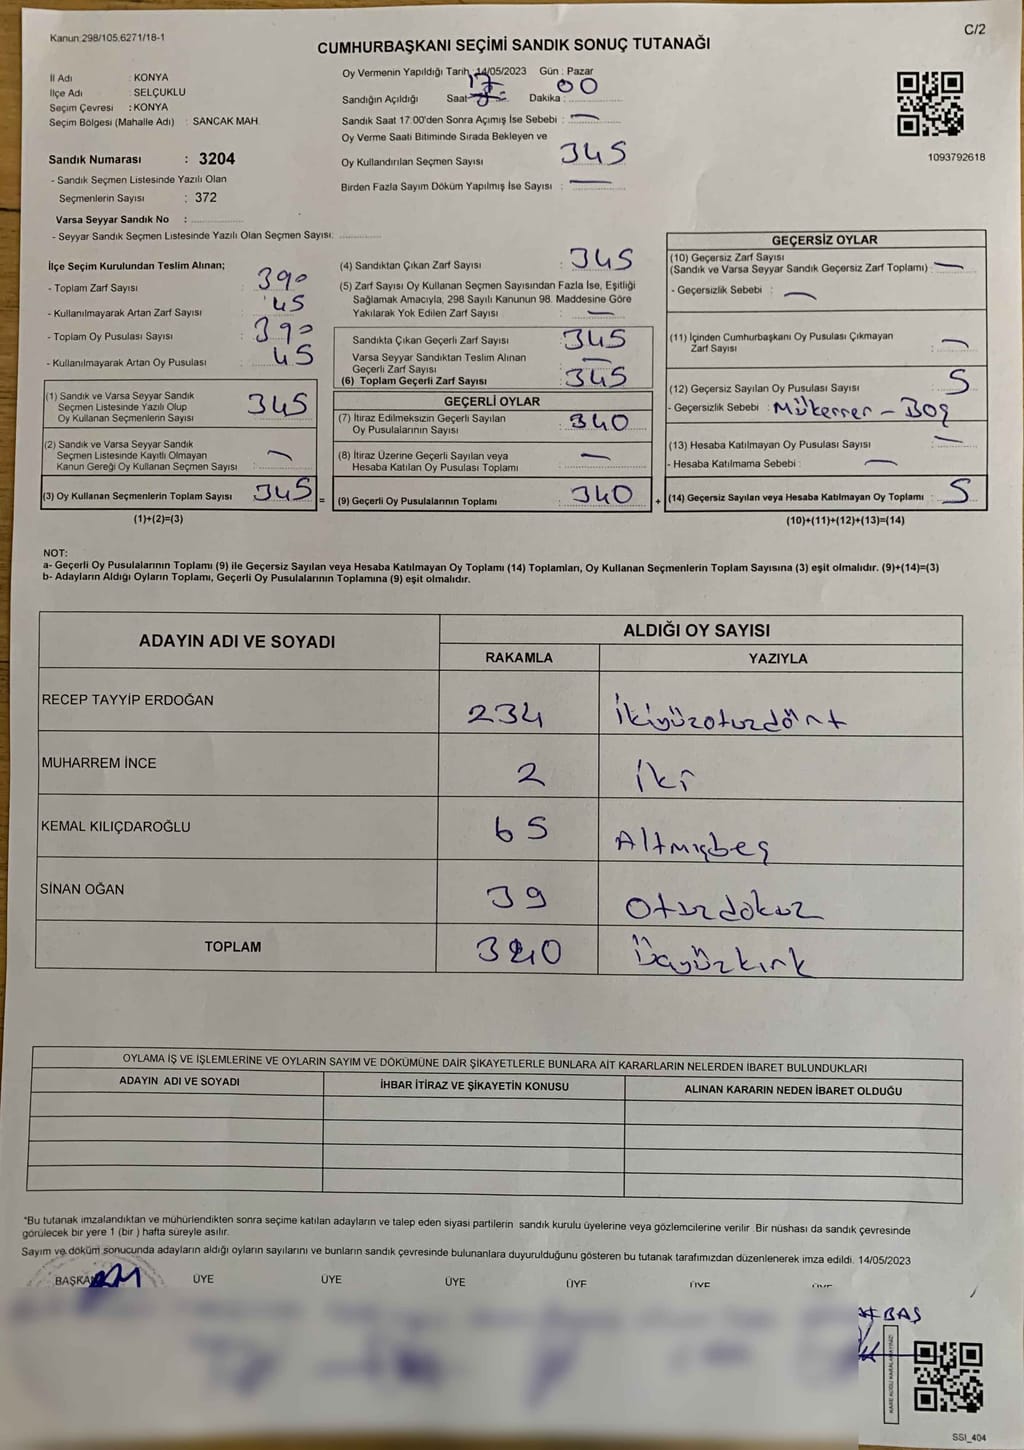 Kanun:298/105,6271/18-1
C/2
CUMHURBAŞKANI SEÇİMİ SANDIK SONUÇ TUTANAĞI
İl Adı : KONYA
İlçe Adı : SELÇUKLU
Seçim Çevresi : KONYA
Seçim Bölgesi (Mahalle Adı) : SANCAK MAH.
Sandık Numarası : 3204
- Sandık Seçmen Listesinde Yazılı Olan
Seçmenlerin Sayısı : 372
Varsa Seyyar Sandık No :
- Seyyar Sandık Seçmen Listesinde Yazılı Olan Seçmen Sayısı:
Oy Vermenin Yapıldığı Tarih : 14/05/2023 Gün : Pazar
Sandığın Açıldığı Saat : 17 Dakika : 00
Sandık Saat 17:00'den Sonra Açımış İse Sebebi : —
Oy Verme Saati Bitiminde Sırada Bekleyen ve
Oy Kullandırılan Seçmen Sayısı 345
Birden Fazla Sayım Döküm Yapılmış İse Sayısı : —
1093792618
İlçe Seçim Kurulundan Teslim Alınan;
- Toplam Zarf Sayısı : 390
- Kullanılmayarak Artan Zarf Sayısı : 45
- Toplam Oy Pusulası Sayısı : 390
- Kullanılmayarak Artan Oy Pusulası : 45
(1) Sandık ve Varsa Seyyar Sandık
Seçmen Listesinde Yazılı Olup
Oy Kullanan Seçmenlerin Sayısı 345
(2) Sandık ve Varsa Seyyar Sandık
Seçmen Listesinde Kayıtlı Olmayan
Kanun Gereği Oy Kullanan Seçmen Sayısı : —
(3) Oy Kullanan Seçmenlerin Toplam Sayısı : 345 =
(1)+(2)=(3)
(4) Sandıktan Çıkan Zarf Sayısı : 345
(5) Zarf Sayısı Oy Kullanan Seçmen Sayısından Fazla İse, Eşitliği
Sağlamak Amacıyla, 298 Sayılı Kanunun 98. Maddesine Göre
Yakılarak Yok Edilen Zarf Sayısı : —
Sandıkta Çıkan Geçerli Zarf Sayısı : 345
Varsa Seyyar Sandıktan Teslim Alınan
Geçerli Zarf Sayısı : —
(6) Toplam Geçerli Zarf Sayısı : 345
GEÇERLİ OYLAR
(7) İtiraz Edilmeksizin Geçerli Sayılan
Oy Pusulalarının Sayısı : 340
(8) İtiraz Üzerine Geçerli Sayılan veya
Hesaba Katılan Oy Pusulası Toplamı : —
(9) Geçerli Oy Pusulalarının Toplamı : 340 +
GEÇERSİZ OYLAR
(10) Geçersiz Zarf Sayısı
(Sandık ve Varsa Seyyar Sandık Geçersiz Zarf Toplamı) : —
- Geçersizlik Sebebi : —
(11) İçinden Cumhurbaşkanı Oy Pusulası Çıkmayan
Zarf Sayısı : —
(12) Geçersiz Sayılan Oy Pusulası Sayısı : 5
- Geçersizlik Sebebi : Mükerrer - Boş
(13) Hesaba Katılmayan Oy Pusulası Sayısı : —
- Hesaba Katılmama Sebebi : —
(14) Geçersiz Sayılan veya Hesaba Katılmayan Oy Toplamı : 5
(10)+(11)+(12)+(13)=(14)
NOT:
a- Geçerli Oy Pusulalarının Toplamı (9) ile Geçersiz Sayılan veya Hesaba Katılmayan Oy Toplamı (14) Toplamları, Oy Kullanan Seçmenlerin Toplam Sayısına (3) eşit olmalıdır. (9)+(14)=(3)
b- Adayların Aldığı Oyların Toplamı, Geçerli Oy Pusulalarının Toplamına (9) eşit olmalıdır.
ADAYIN ADI VE SOYADI ALDIĞI OY SAYISI
RAKAMLA YAZIYLA
RECEP TAYYİP ERDOĞAN 234 İkiyüzotuzdört
MUHARREM İNCE 2 iki
KEMAL KILIÇDAROĞLU 65 Altmışbeş
SİNAN OĞAN 39 Otuzdokuz
TOPLAM 340 Üçyüzkırk
OYLAMA İŞ VE İŞLEMLERİNE VE OYLARIN SAYIM VE DÖKÜMÜNE DAİR ŞİKAYETLERLE BUNLARA AİT KARARLARIN NELERDEN İBARET BULUNDUKLARI
ADAYIN ADI VE SOYADI İHBAR İTİRAZ VE ŞİKAYETİN KONUSU ALINAN KARARIN NEDEN İBARET OLDUĞU
*Bu tutanak imzalandıktan ve mühürlendikten sonra seçime katılan adayların ve talep eden siyasi partilerin sandık kurulu üyelerine veya gözlemcilerine verilir. Bir nüshası da sandık çevresinde
görülecek bir yere 1 (bir ) hafta süreyle asılır.
Sayım ve döküm sonucunda adayların aldığı oyların sayılarını ve bunların sandık çevresinde bulunanlara duyurulduğunu gösteren bu tutanak tarafımızdan düzenlenerek imza edildi. 14/05/2023
BAŞKAN ÜYE ÜYE ÜYE ÜYE ÜYE ÜYE
BAŞ
SSI_404